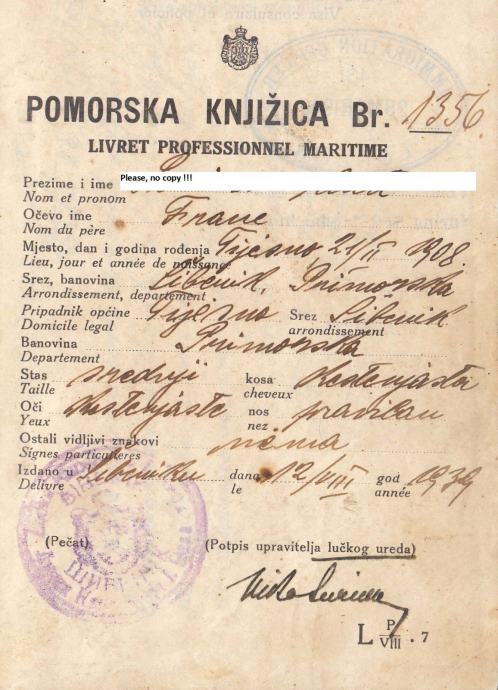 POMORSKA KNJIŽICA Br. 1356
LIVRET PROFESSIONNEL MARITIME
Please, no copy !!!
Prezime i ime
Nom et pronom
Očevo ime Frane
Nom du père
Mjesto, dan i godina rođenja Tijesno, 21/II 1908.
Lieu, jour et année de naissance
Srez, banovina Šibenik, Primorska
Arrondissement, departement
Pripadnik općine Tijesno Srez Šibenik
Domicile legal arrondissement
Banovina Primorska
Departement
Stas srednji kosa kestenjasta
Taille cheveux
Oči kestenjaste nos pravilan
Yeux nez
Ostali vidljivi znakovi nema
Signes particulieres
Izdano u Šibeniku dana 12/VIII god 1939
Delivre le année
(Pečat) (Potpis upravitelja lučkog ureda)
L P/VIII . 7